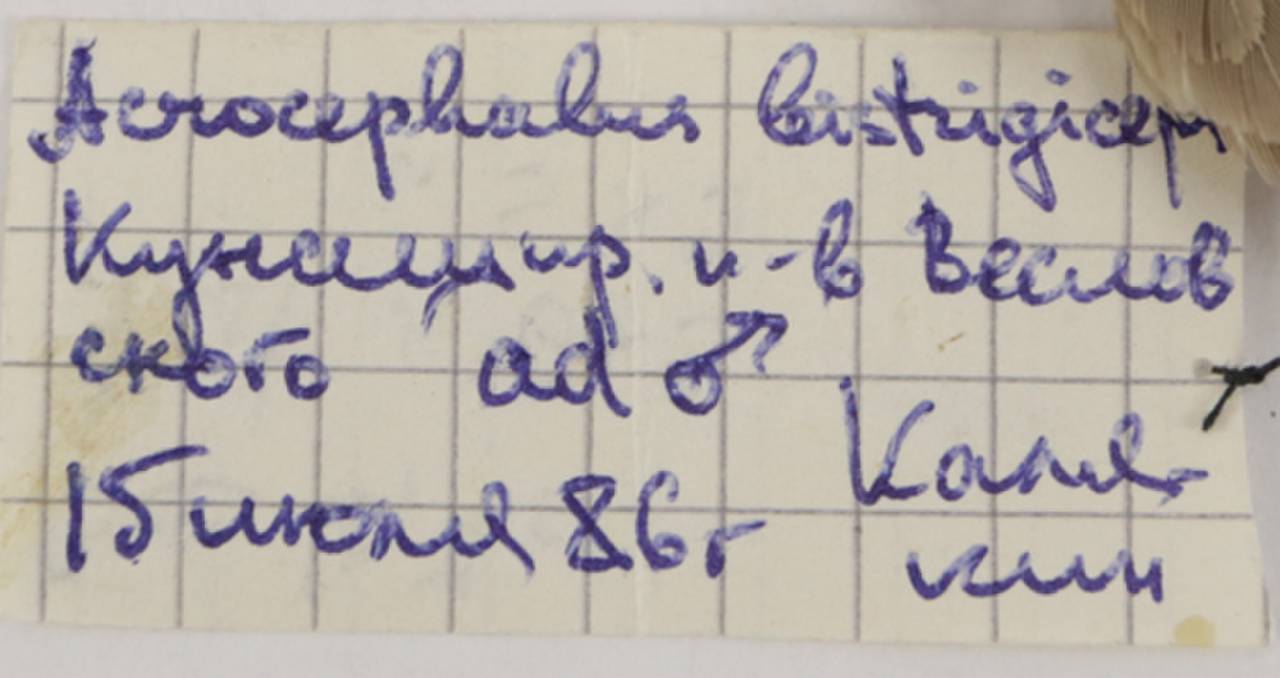 Acrocephalus bistrigiceps
Кунашир. п-в Веслов
ского ad ♂
15 июля 86 г Каля-
кин